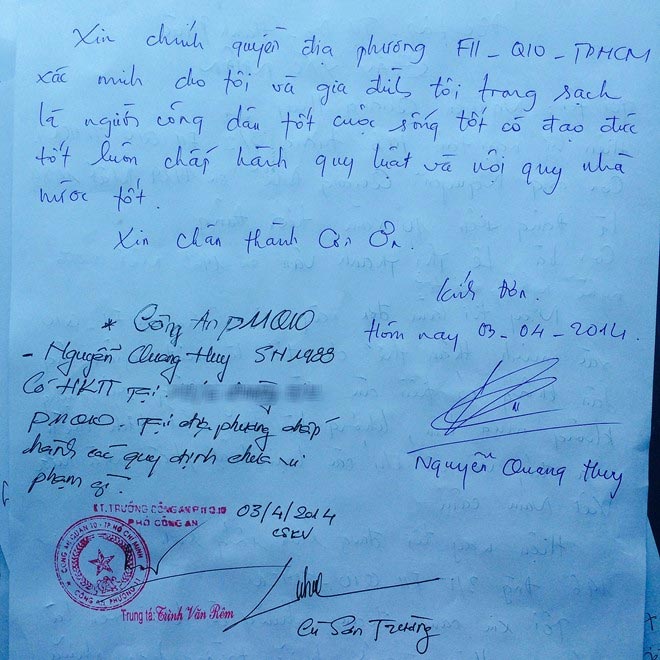 Xin chính quyền địa phương F11 - Q10 - TPHCM
xác minh cho tôi và gia đình tôi trong sạch
là người công dân tốt cuộc sống tốt có đạo đức
tốt luôn chấp hành quy luật và nội quy nhà
nước tốt.
Xin chân thành Cảm Ơn.
Kính Đơn.
Hôm nay 03-04-2014.
Nguyễn Quang Huy
* Công An P11Q10
- Nguyễn Quang Huy SN 1988
Có HKTT Tại
P11Q10. Tại địa phương chấp
hành các quy định chưa vi
phạm gì.
03/4/2014
CSKV
KT.TRƯỞNG CÔNG AN P11 Q.10
PHÓ CÔNG AN
CÔNG AN QUẬN 10 - TP HỒ CHÍ MINH
CÔNG AN PHƯỜNG
Trung tá: Trịnh Văn Rêm
Cù Sơn Trường